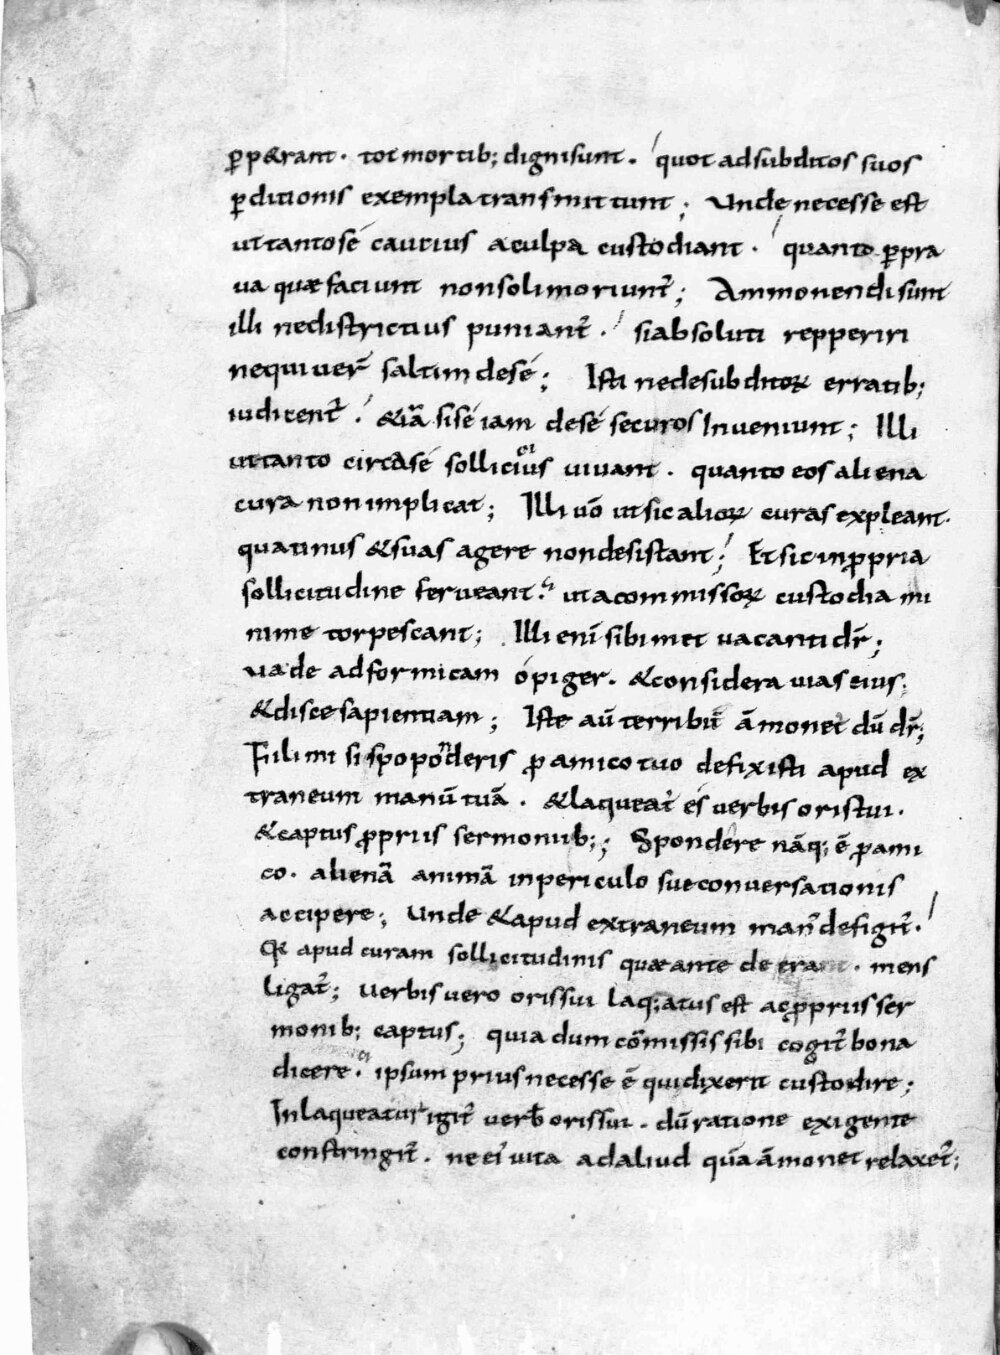 ꝑp&rant. tot mortib; dignisunt. quot adsubditos suos
ꝑditionis exempla transmittunt; Unde necesse est
uttantosé cautius aculpa custodiant. quanto ꝑpra
ua quæ faciunt nonsoli moriunt̃; Ammonendi sunt
illi nedistrictius puniant̃. siabsoluti repperiri
nequiuer̃ saltim desé; Isti nedesubditoꝝ erratib;
iudicent̃. &iã sisé iam desé securos Inueniunt; Illi
uttanto circasé sollicitius uiuant. quanto eos aliena
cura non implicat; Illi uõ utsic alioꝝ curas expleant.
quatinus &suas agere nondesistant; Et sic inꝓpria
sollicitudine ferueant. utacommissoꝝ custodia mi
nime torpescant; Illi enĩ sibimet uacanti dr̃;
uade adformicam ópiger. &considera uias eius;
&disce sapientiam; Iste aũ terribilit̃ ãmonet dũ dr̃;
Fili mi sispoponderis ꝓ amico tuo defixisti apud ex
traneum manũ tuã. &laqueat' és uerbis oris tui.
&captus ꝓpriis sermonib;; Spondere nãq; ẽ ꝓ ami
co. alienã animã inpericulo sue conuersationis
accipere; Unde &apud extraneum man' defigit̃.
Qr apud curam sollicitudinis quæ ante deerat. mens
ligat̃; Uerbis uero oris sui laq;atus est acꝓpriis ser
monib; captus; quia dum cõmissis sibi cogit̃ bona
dicere. ipsum prius necesse ẽ quidixerit custodire;
Inlaqueatur igit̃ uerb̃ oris sui. dũ ratione exigente
constringit̃. ne ei' uita adaliud quã ãmonet relaxet̃;